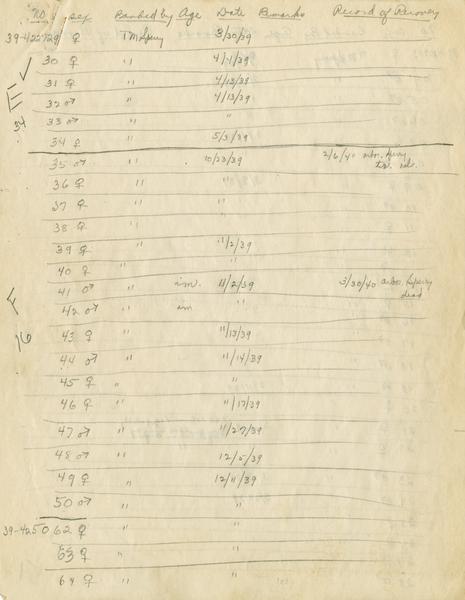 No. sex Banded by Age Date Remarks Record of Recovery
39-422729 ♀ TM Sperry 3/30/39
30 ♀ " 4/1/39
31 ♀ " 4/13/39
32 ♂ " 4/13/39
34
33 ♂ " "
34 ♀ 5/3/39
35 ♂ " 10/23/39 2/6/40
36 ♀ " "
37 ♀ " "
38 ♀ " "
39 ♀ " 11/2/39
40 ♀ " "
41 ♂ " im. 11/2/39 3/30/40 Sperry dead
F
42 ♂ " im "
16
43 ♀ " 11/13/39
44 ♂ " 11/14/39
45 ♀ " "
46 ♀ " 11/17/39
47 ♂ " 11/27/39
48 ♂ " 12/5/39
49 ♀ " 12/11/39
50 ♂ " "
39-425062 ♀ " "
63 ♀ " "
64 ♀ " "